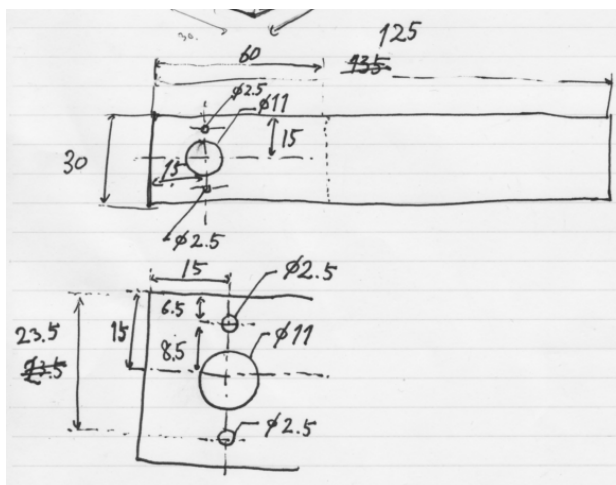 30.
125
60
135
φ2.5
φ11
15
30
15
φ2.5
15
φ2.5
6.5
23.5
15
8.5
φ11
φ2.5